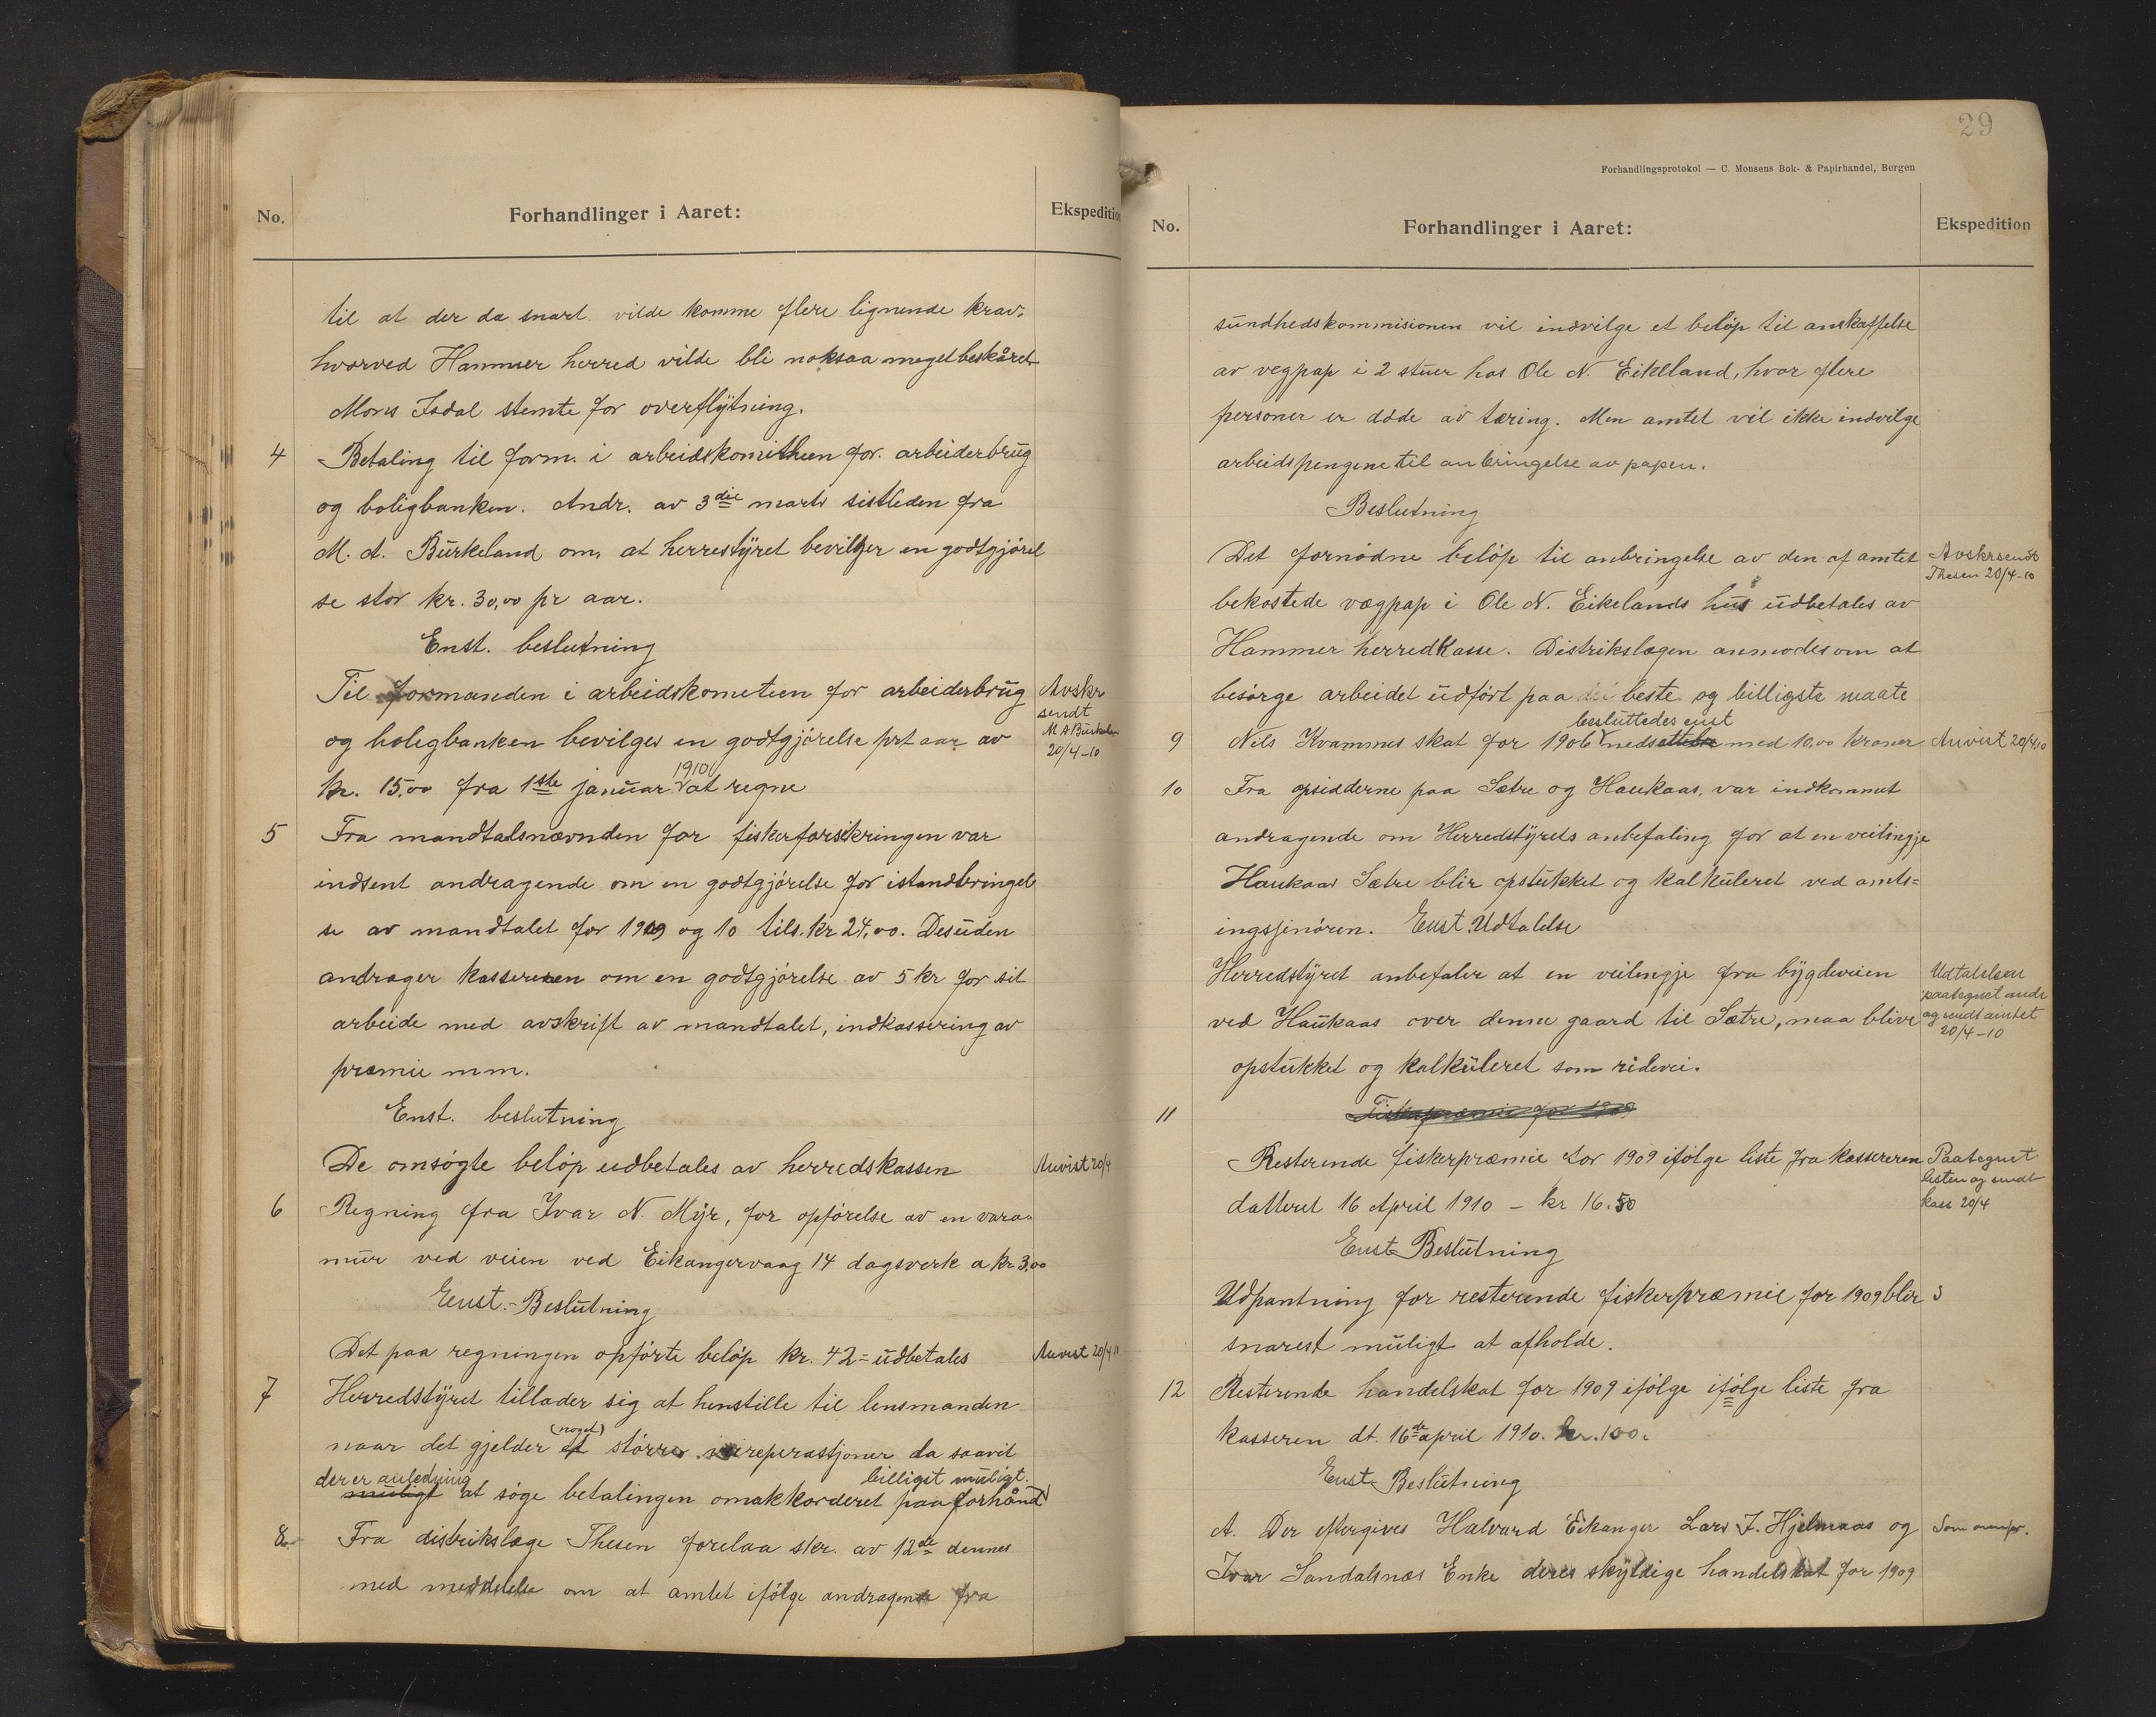 No.
Forhandlinger i Aaret:
Ekspedition
til at der da snart vilde komme flere lignende krav.
hvorved Hammer herred vilde bli noksaa meget beskåret
Mons Isdal stemte for overflytning.
4 Betaling til form. i arbeidskomitheen for arbeiderbrug
og boligbanken. Andr. av 3die marts sistleden fra
M. A. Burkeland om, at herrestyret bevilger en godtgjørel
se stor kr. 30,00 pr aar.
Enst. beslutning
Til formanden i arbeidskometeen for arbeiderbrug
og boligbanken bevilges en godtgjørelse prt aar av
1910
kr. 15,00 fra 1ste januar at regne
Avskr
sendt
M A Burkeland
20/4-10
5 Fra mandtalsnævnden for fiskerforsikringen var
indsent andragende om en godtgjørelse for istandbringel
se av mandtalet for 1909 og 10 tils. kr 24,00. Desuden
andrager kassereren om en godtgjørelse av 5 kr for sit
arbeide med avskrift av mandtalet, indkassering av
præmie m.m.
Enst. beslutning
De omsøgte beløp udbetales av herredskassen
Anvist 20/4
6 Regning fra Ivar N. Myr, for opførelse av en vara-
mur ved veien ved Eikangervaag 14 dagsverk a kr 3,00
Enst.- Beslutning
Det paa regningen opførte beløp kr. 42= udbetales
Anvist 20/4
7 Herredstyret tillader sig at henstille til lensmanden
(noget)
naar det gjelder et større veireperastjoner da saavit
der er anledning billigst muligt.
muligt at søge betalingen omakkorderet paa forhånd
8 Fra distrikslæge Thesen forelaa skr. av 12de dennes
med meddelelse om at amtet ifølge andragende fra
29
Forhandlingsprotokol — C. Monsens Bok- & Papirhandel, Bergen
No.
Forhandlinger i Aaret:
Ekspedition
sundhedskommisionen vil indvilge et beløp til anskaffelse
av vegpap i 2 stuer hos Ole N. Eikeland, hvor flere
personer er døde av tæring. Men amtet vil ikke indvilge
arbeidspengene til anbringelse av papen.
Beslutning
Det fornødne beløp til anbringelse av den af amtet
bekostede vægpap i Ole N. Eikelands hus udbetales av
Hammer herredkasse. Distrikslægen anmodes om at
besørge arbeidet udført paa beste og billigste maate
Avskr sendt
Thesen 20/4-10
besluttedes enst
9 Nils Kvammes skat for 1906 nedsættelse med 10,00 kroner
Anvist 20/4 10
10 Fra opsidderne paa Sætre og Haukaas, var indkommet
andragende om Herredstyrets anbefaling for at en veilingje
Haukaas Sætre blir opstukket og kalkuleret ved amts=
ingsjenøren. Enst. Udtalelse
Herredstyret anbefaler at en veilengje fra bygdeveien
ved Haukaas over denne gaard til Sætre, maa blive
opstukket og kalkuleret som ridevei.
Udtalelsen
paategnet andr
og sendt amtet
20/4-10
11 Fiskepræmie for 1909
Resterende fiskerpræmie for 1909 ifølge liste fra kassereren
datteret 16 April 1910 - kr 16.50
Paategnet
listen og sendt
kass 20/4
Enst Beslutning
Udpantning for resterende fiskerpræmie for 1909 blir
snarest muligt at afholde.
12 Resterende handelskat for 1909 ifølge ifølge liste fra
kasseren dt. 16de april 1910. kr. 100.
Enst Beslutning
A. Der eftergives Halvard Eikanger Lars J. Hjelmaas og
Ivar Sandalsnæs Enke deres skyldige handelskat for 1909
Som ovenfor.